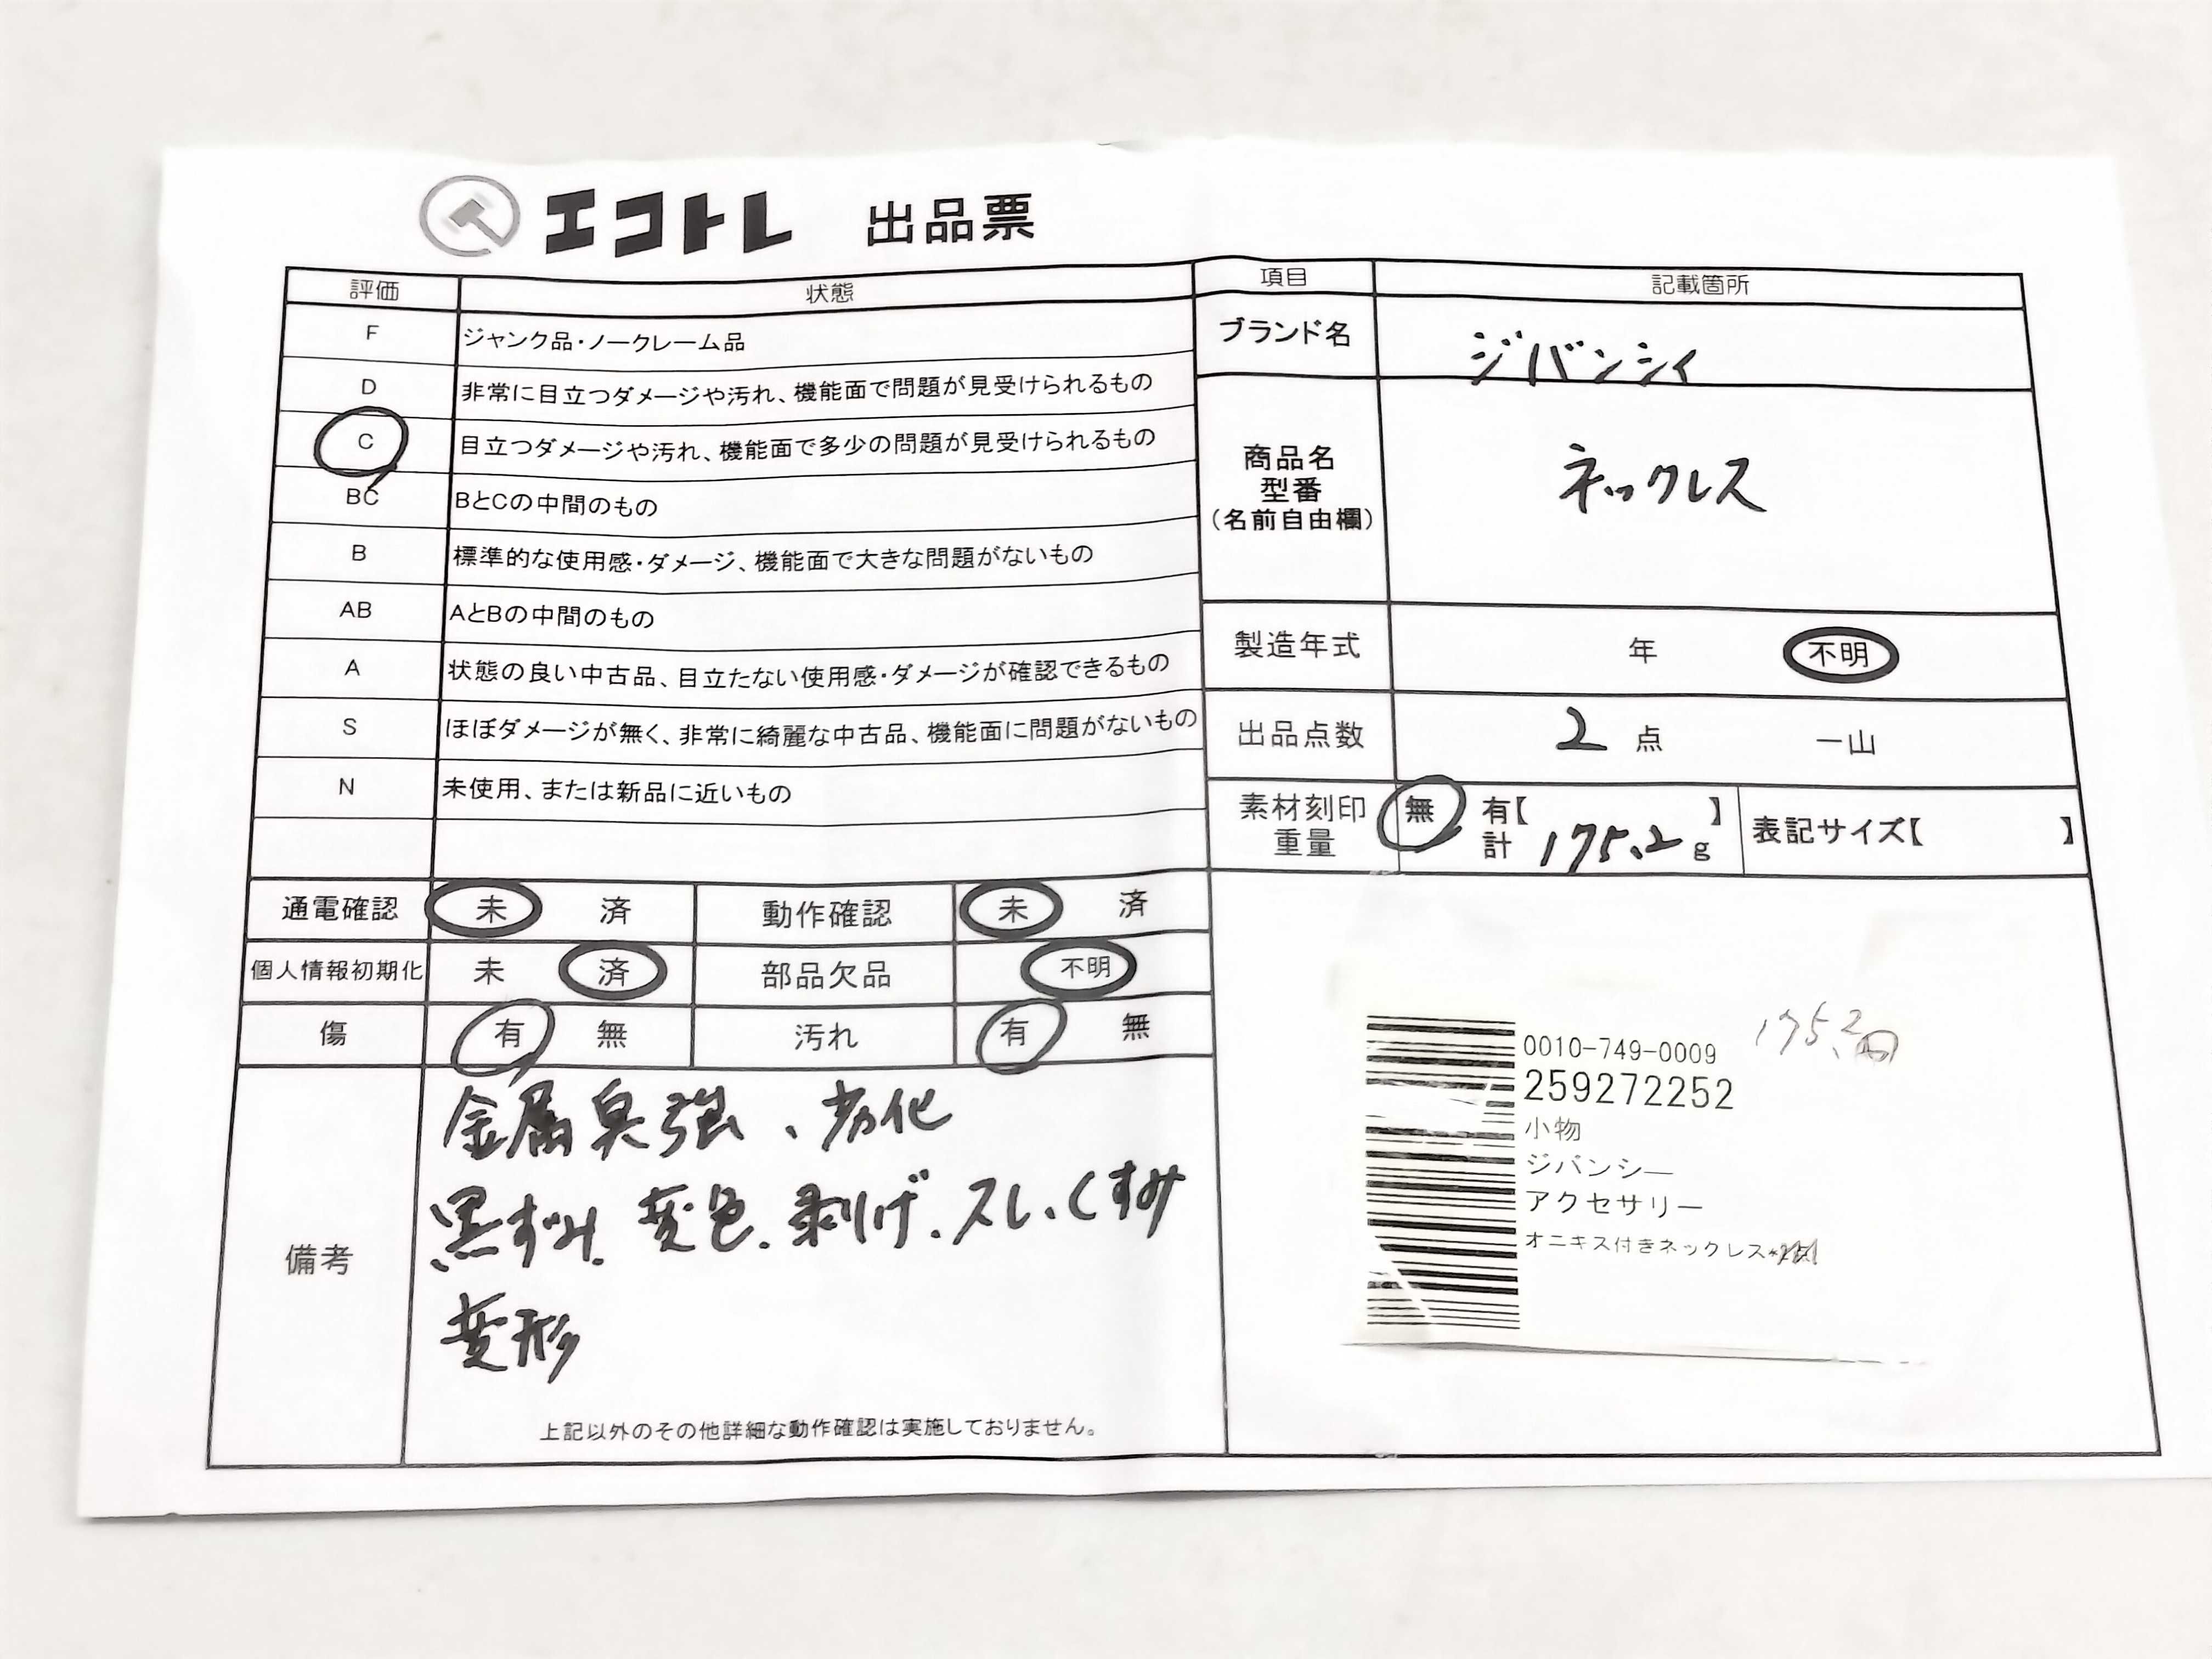 エコトレ 出品票
評価 状態
F ジャンク品・ノークレーム品
D 非常に目立つダメージや汚れ、機能面で問題が見受けられるもの
C 目立つダメージや汚れ、機能面で多少の問題が見受けられるもの
BC BとCの中間のもの
B 標準的な使用感・ダメージ、機能面で大きな問題がないもの
AB AとBの中間のもの
A 状態の良い中古品、目立たない使用感・ダメージが確認できるもの
S ほぼダメージが無く、非常に綺麗な中古品、機能面に問題がないもの
N 未使用、または新品に近いもの
通電確認 未 済 動作確認 未 済
個人情報初期化 未 済 部品欠品 不明
傷 有 無 汚れ 有 無
備考
金属臭強、劣化
黒ずみ.変色.剥げ.スレ.くすみ
変形
上記以外のその他詳細な動作確認は実施しておりません。
項目 記載箇所
ブランド名 ジバンシィ
商品名
型番
(名前自由欄)
ネックレス
製造年式 年 不明
出品点数 2 点 一山
素材刻印 無 有【 】
重量 計 175.2 g
表記サイズ【 】
175.2
0010-749-0009
259272252
小物
ジバンシー
アクセサリー
オニキス付きネックレス*